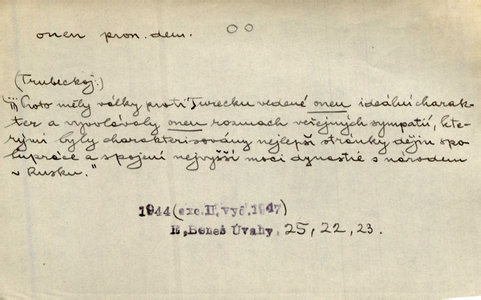 onen pron. dem.
(Trubeckoj:)
"Proto měly války proti Turecku vedené onen ideální charak-
ter a vyvolávaly onen rozmach veřejných sympatií, kte-
rými byly charakterisovány nejlepší stránky dějin spo-
lupráce a spojení nejvyšší moci dynastie s národem
v Rusku."
1944 (exc. II. vyd. 1947)
E. Beneš Úvahy, 25, 22, 23.